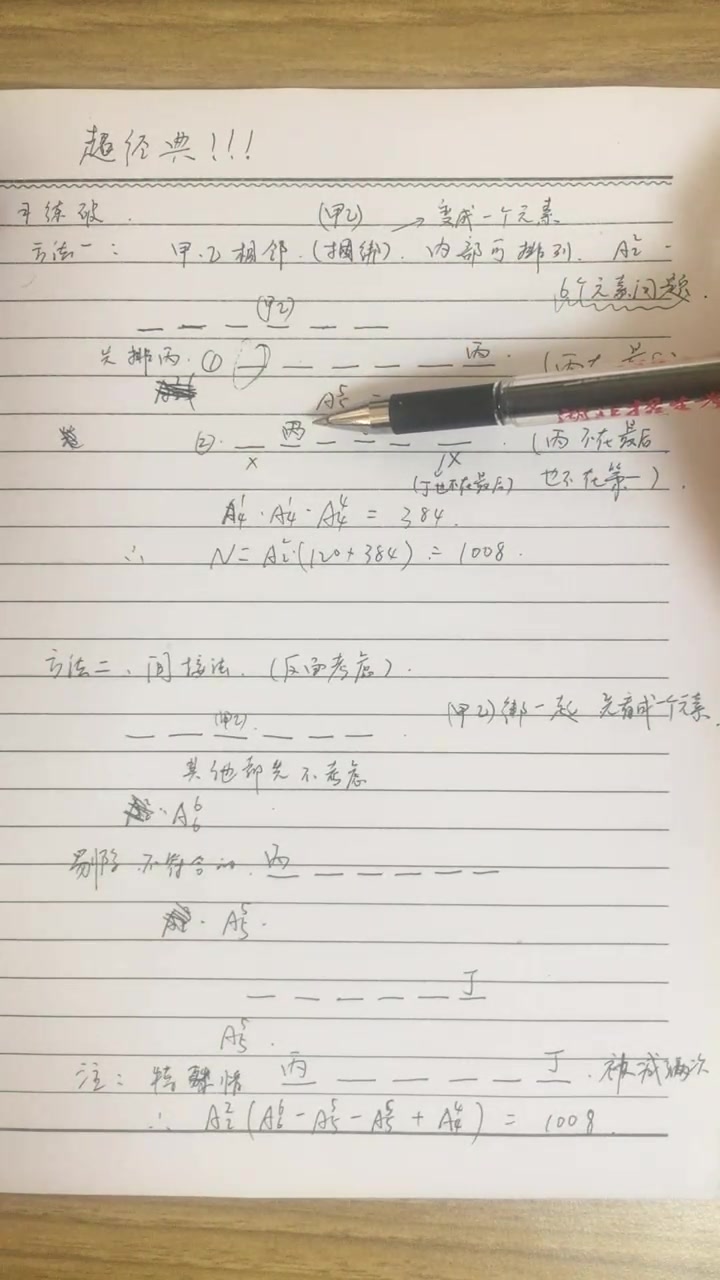 超经典!!!
(甲乙) → 变成一个元素
方法一: 甲.乙相邻.(捆绑). 内部可排列. A₂²
6个元素问题.
(甲乙)
先排丙. ① 丙. (丙在最后
A₅⁵ =
②. 丙 (丙不在最后
x x 也不在第一).
(丁也不在最后)
A₄¹·A₄¹·A₄⁴ = 384.
∴ N = A₂²(120+384) = 1008.
方法二、间接法. (反面考虑).
(甲乙)绑一起 先看成一个元素
(甲乙).
其他都先不考虑
A₆⁶
剔除不符合的. 丙
A₅⁵.
丁
A₅⁵.
注: 特殊情 丙 丁. 被减两次
∴ A₂²(A₆⁶ - A₅⁵ - A₅⁵ + A₄⁴) = 1008.